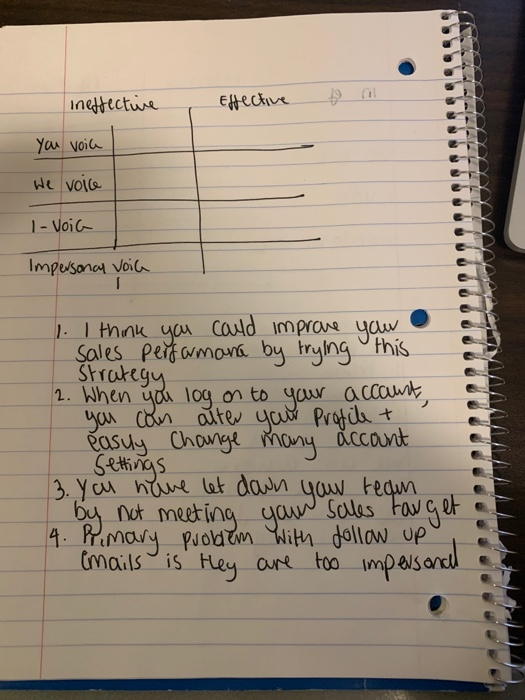 Ineffective Effective
You voice
We voice
I-Voice
Impersonal voice
1. I think you could improve your
sales performance by trying this
strategy
2. When you log on to your account,
you can alter your Profile +
easily change many account
Settings
3. You have let down your team
by not meeting your sales target
4. Primary problem with follow up
emails is they are too impersonal